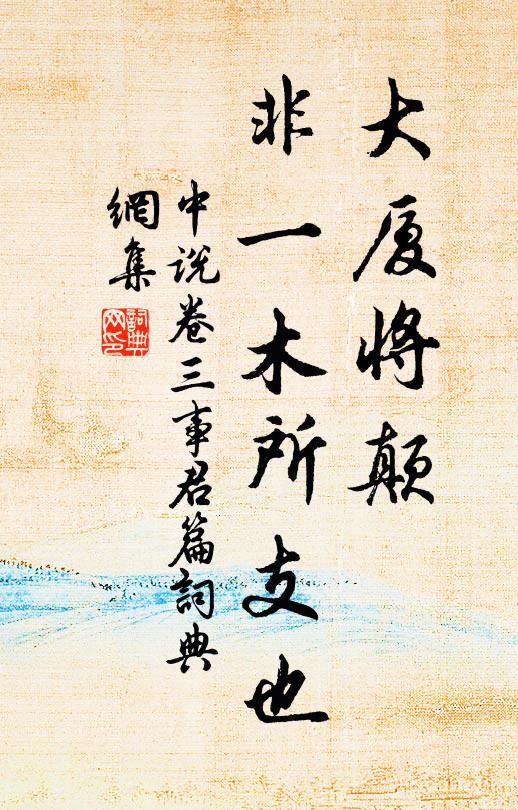 大厦将颠
非一木所支也
中说卷三事君篇詞典
網集
詞典
网印